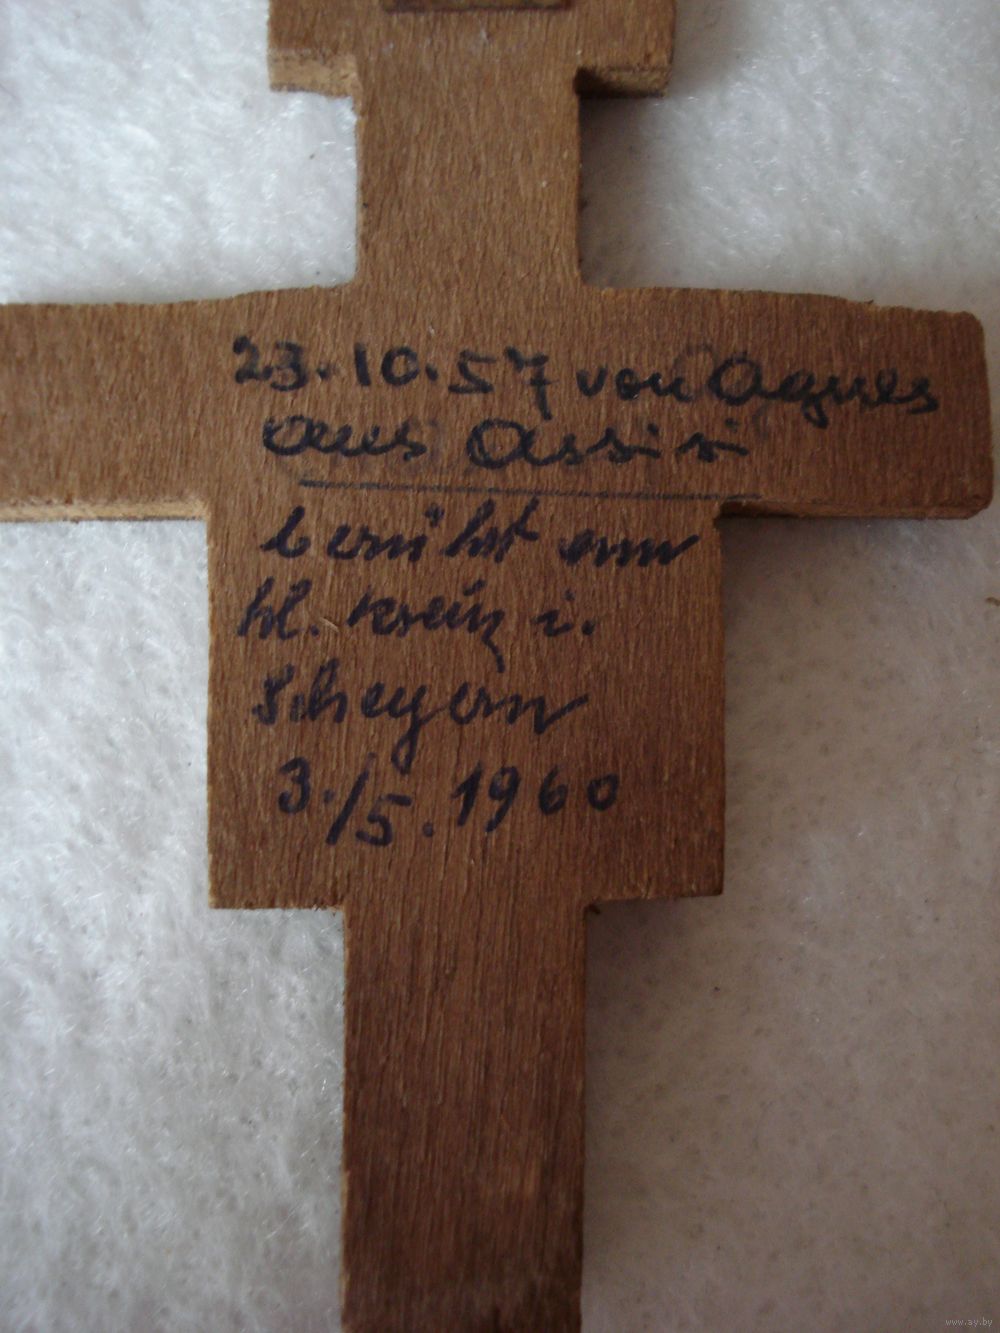 23.10.57 von Agnes
aus Assisi
berührt am
hl. Kreuz i.
Scheyern
3./5.1960
www.ay.by